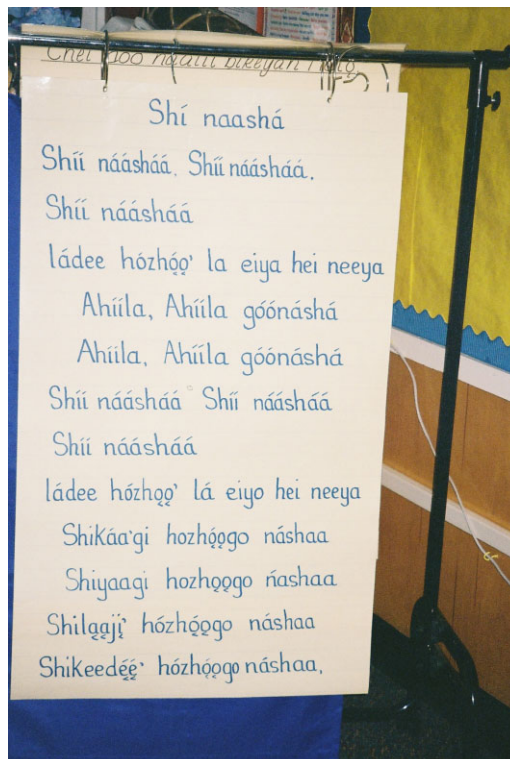 Shí naashá
Shíí náásháá, Shíí náásháá.
Shíí náásháá
ládee hózhǫ́ǫ' la eiya hei neeya
Ahííla, Ahííla góónáshá
Ahííla, Ahííla góónáshá
Shíí náásháá Shíí náásháá
Shíí náásháá
ládee hózhǫǫ' lá eiyo hei neeya
Shikáa'gi hozhǫ́ǫgo náshaa
Shiyaagi hozhǫǫgo ńashaa
Shiląąjį́' hózhǫ́ǫgo náshaa
Shikeedę́ę́' hózhǫ́ǫgo náshaa,